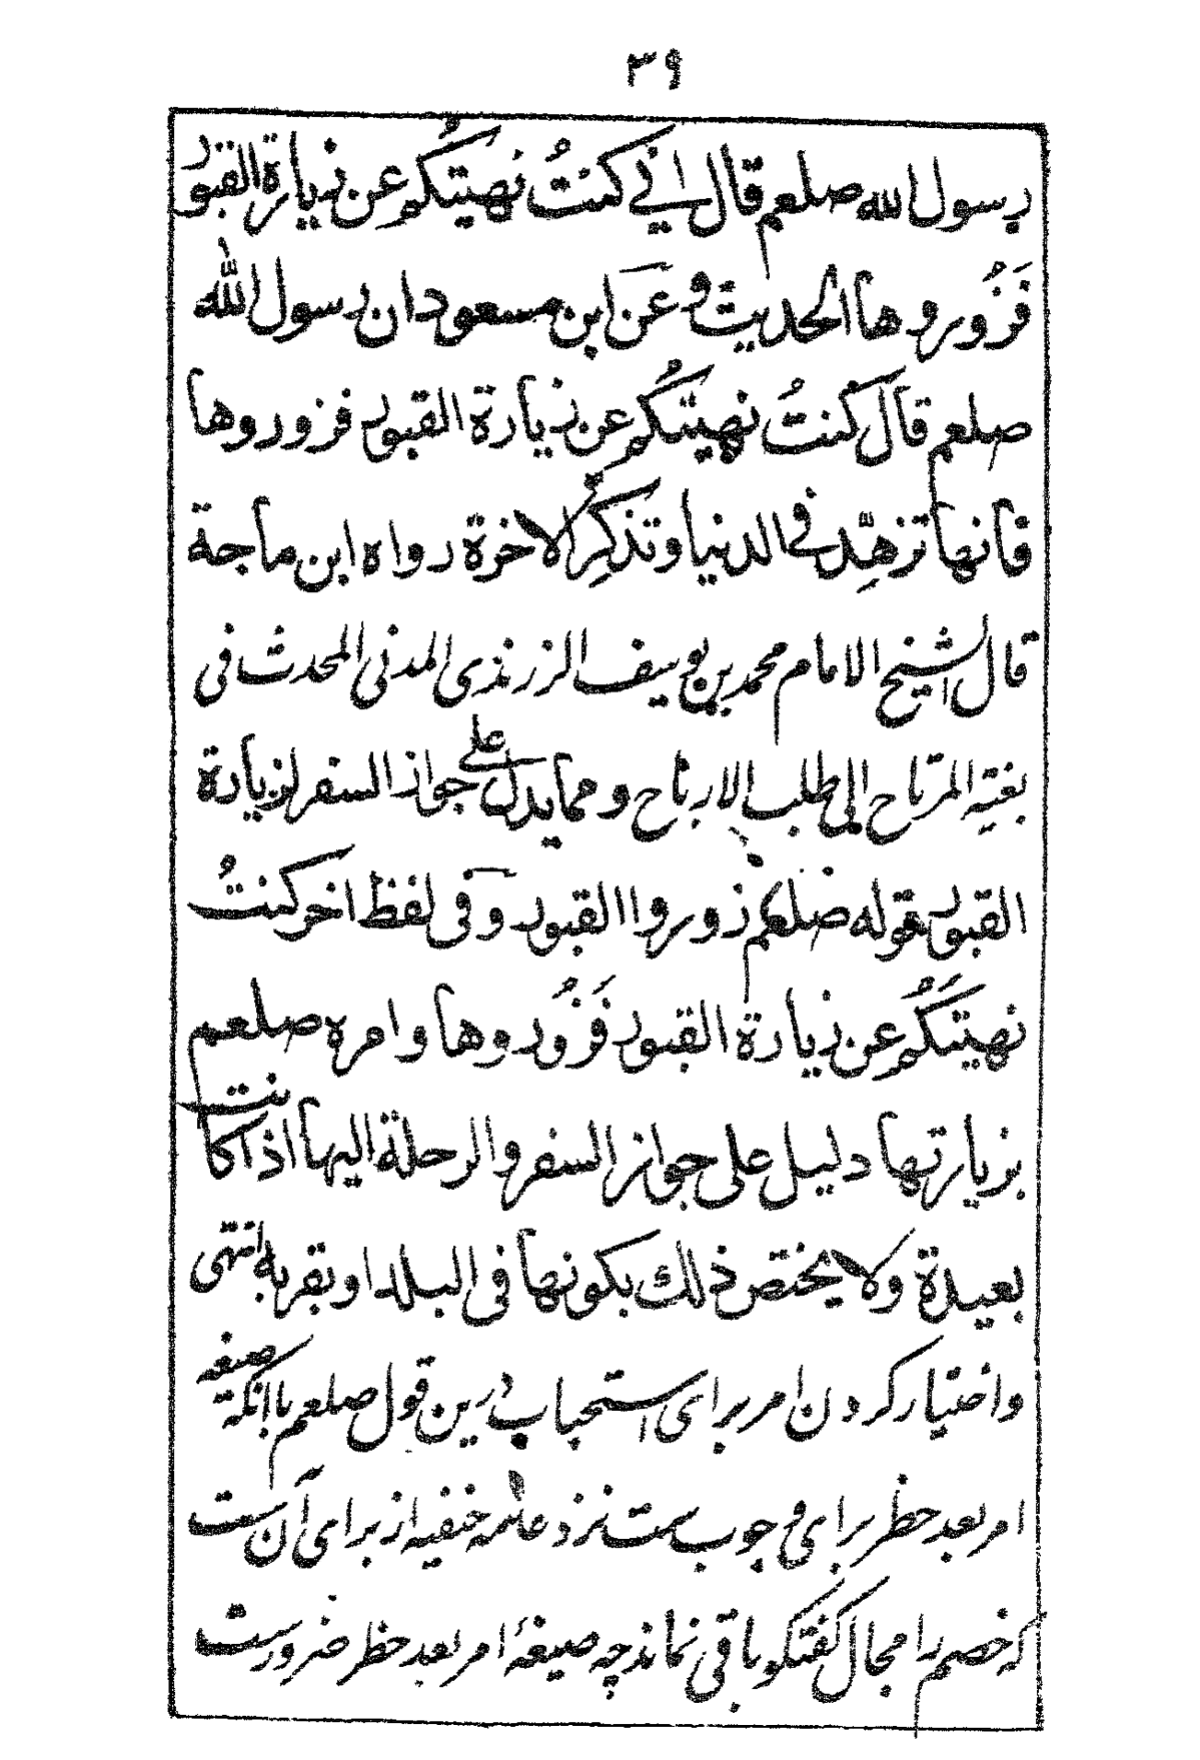 ٣٩
رسول الله صلعم قال اني كنتُ نهيتكُم عن زيارة القبور
فَزُوروها الحديث وعَن ابن مسعود ان رسول الله
صلعم قال كُنتُ نهيتكُم عن زيارة القبور فزوروها
فانها تزهِّد في الدنيا وتذكِر الاخرة رواه ابن ماجة
قال الشيخ الامام محمد بن يوسف الزرندى المدنى المحدث فى
بغية المرتاح الى طلب الارباح ومما يدل على جواز السفر لزيارة
القبور قوله صلعم زوروا القبور وفى لفظ اخر كنتُ
نهيتَكُم عن زيارة القبور فَزُوروها وامره صلعم
بزيارتها دليل على جواز السفر والرحلة اليها اذا كانت
بعيدة ولا يختص ذلك بكونها فى البلد او بقربه انتهى
واختيار كردن امر براى استحباب درين قول صلعم با آنكه صيغه
امر بعد حظر براى وجوب ست نزد علمه حنفيه از براى آن ست
كه خصم را مجال گفتگو باقى نماند چه صيغهٔ امر بعد حظر ضرورست